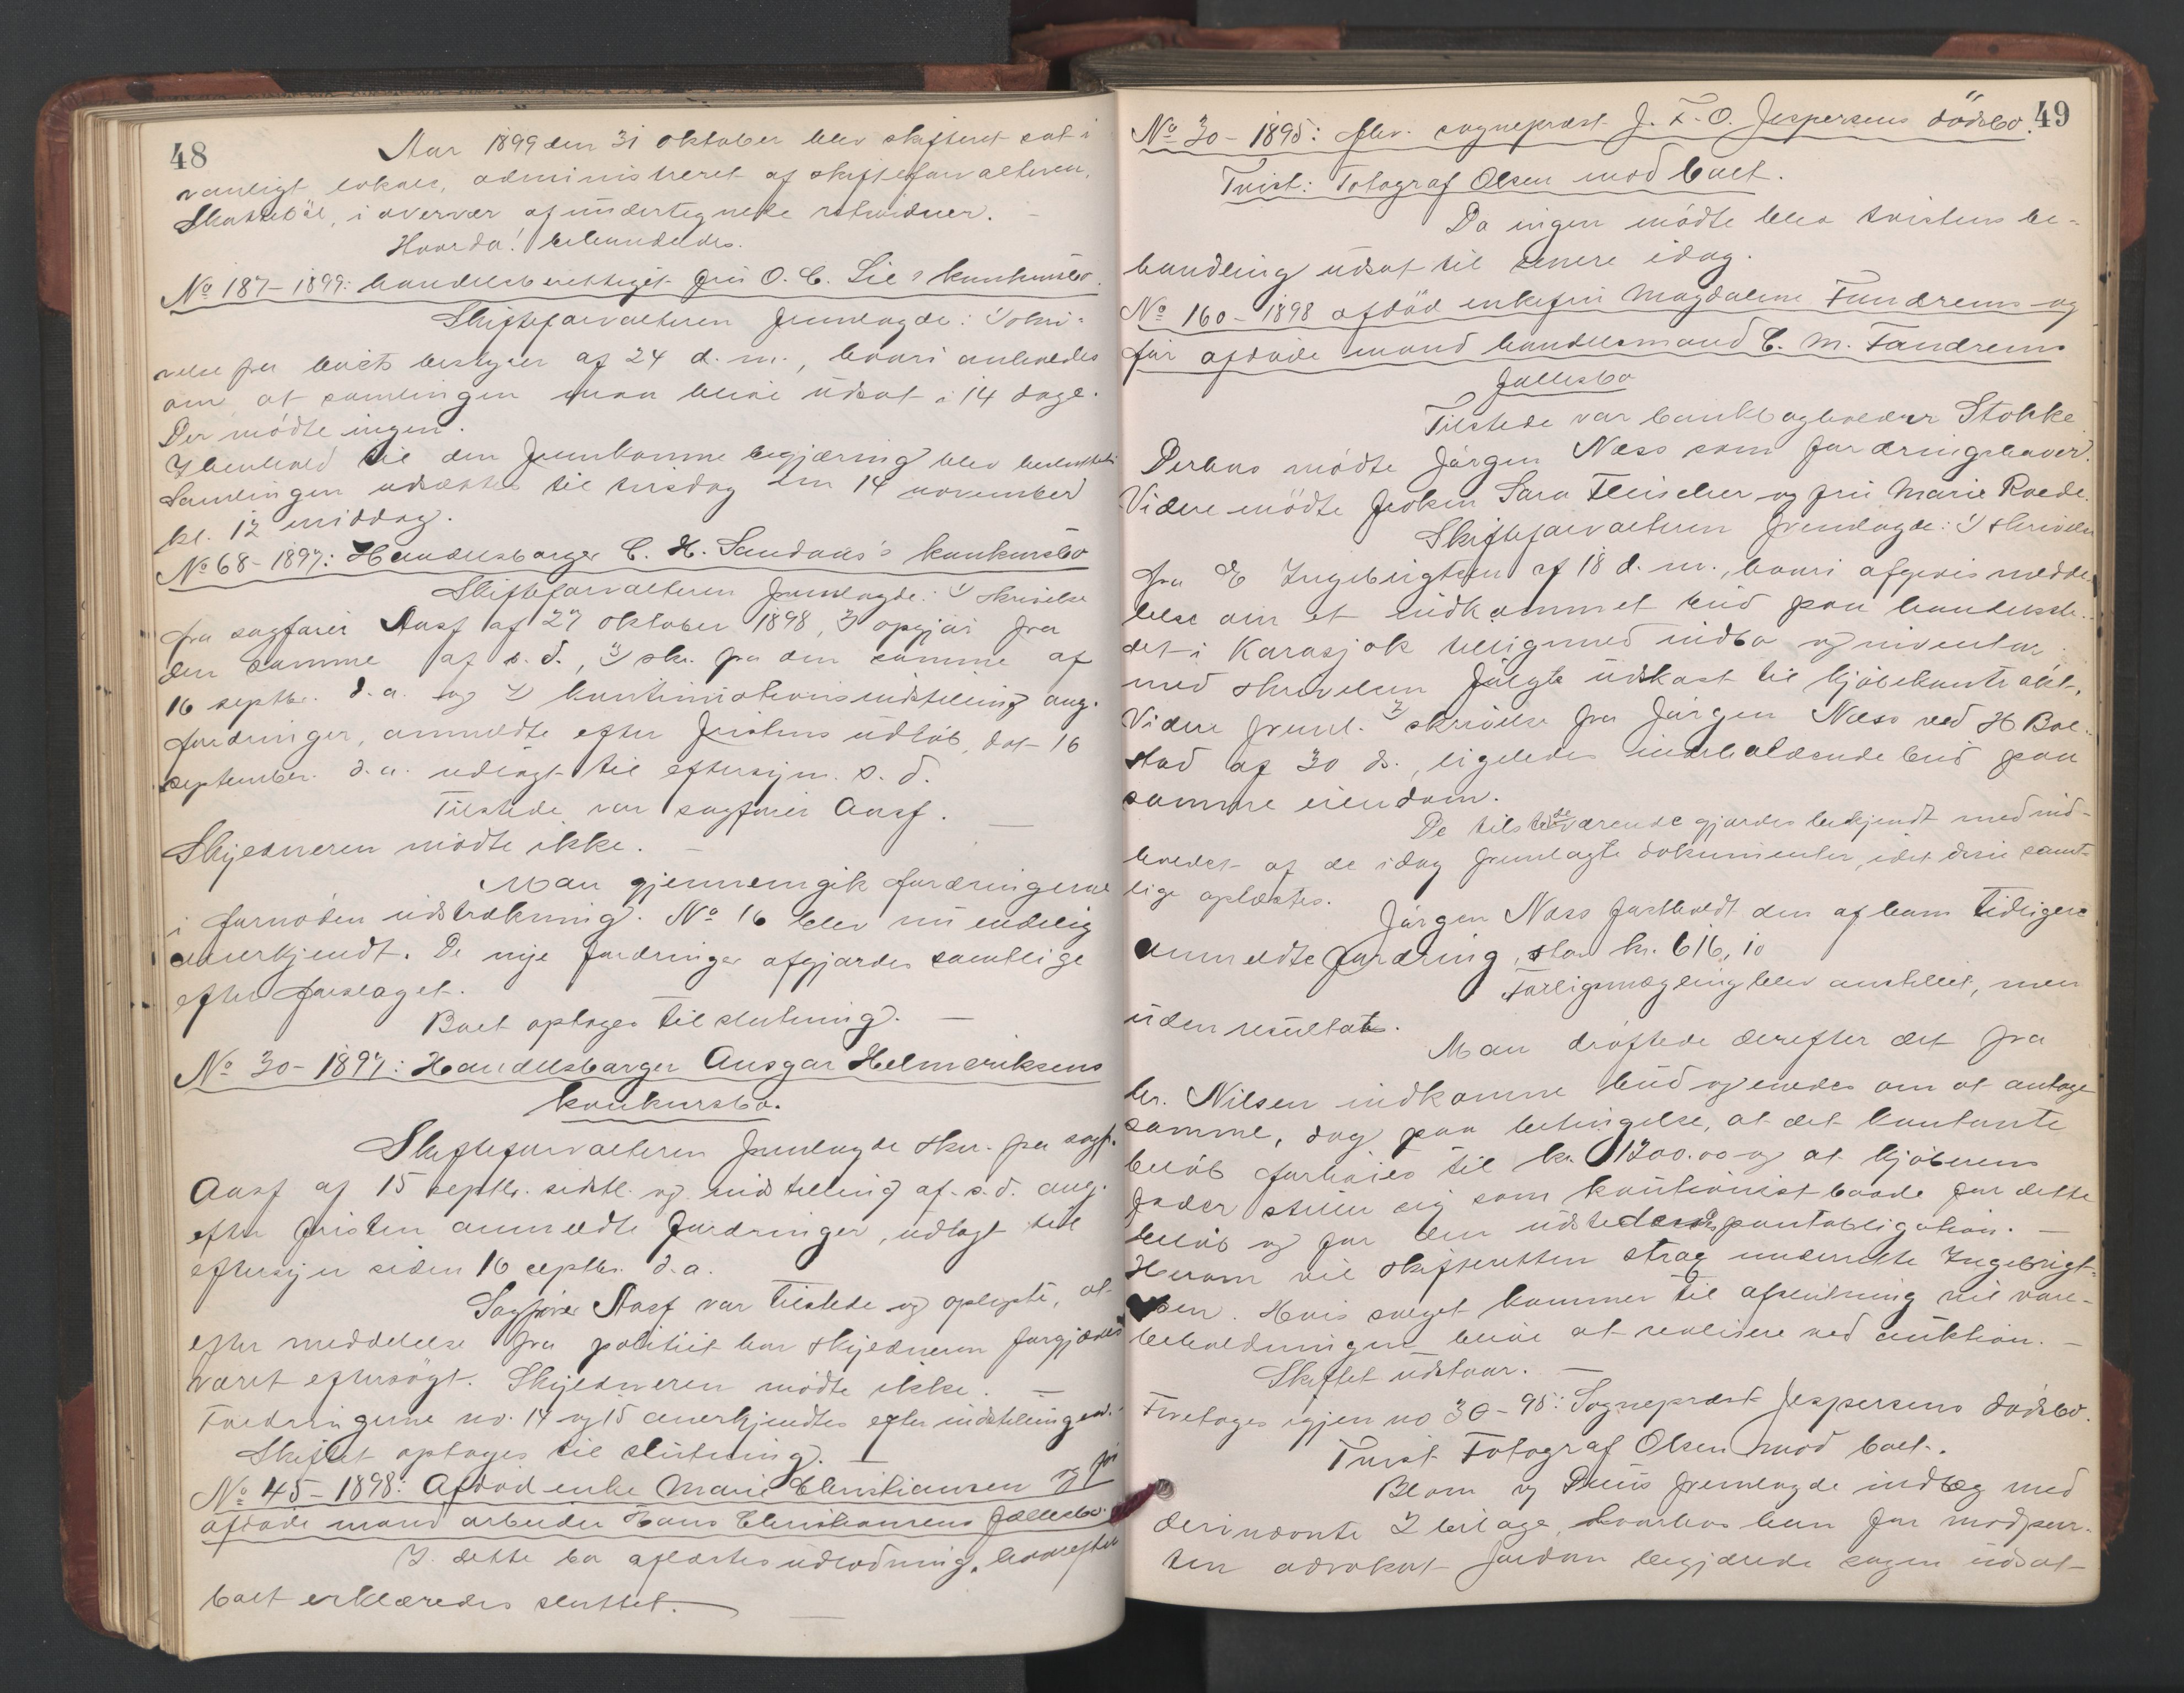 48
Aar 1899 den 31 oktober blev skifteret sat i
vanligt lokale, administreret af skifteforvalteren,
Skattebøl, i overvær af undertegnede retsvidner. –
Hvorda! behandledes.
No 187 – 1899: handelsberettiget fru O. C. Lie's konkursbo.
Skifteforvalteren fremlagde: 1) skri-
velse fra boets bestyrer af 24 d. m., hvori anholdes
om at samlingen maa blive udsat i 14 dage.
Der mødte ingen.
I henhold til den fremkomne begjæring blev besluttet
Samlingen udsættes til tirsdag den 14 november
kl. 12 middag.
No 68 – 1897: Handelsborger C. H. Sandaas's konkursbo
Skifteforvalteren fremlagde: 1) skrivelse
fra sagfører Aasf af 27 oktober 1898, 2) opgjør fra
den samme af s. d., 3) skr. fra den samme af
16 septbr. d. a. og 4) kontinuationsindstilling ang.
fordringer, anmeldte efter fristens udløb, dat 16
september d. a. udlagt til eftersyn s. d.
Tilstede var sagfører Aasf. –
Skyldneren mødte ikke. –
Man gjennemgik fordringerne
i fornøden udstrækning. No 16 blev nu endelig
anerkjendt. De nye fordringer afgjordes samtlige
efter forslaget.
Boet optages til slutning. –
No 30 – 1897: Handelsborger Ansgar Helmeriksens
konkursbo.
Skifteforvalteren fremlagde skr. fra sagf.
Aasf af 15 septbr. sidstl. og indstilling af s. d. ang.
efter fristen anmeldte fordringer, udlagt til
eftersyn siden 16 septbr. d. a.
Sagfører Aasf var tilstede og oplyste, at
efter meddelelse fra politiet har skyldneren forgjæves
været eftersøgt. Skyldneren mødte ikke. –
Fordringerne no. 14 og 15 anerkjendtes efter indstillingen. –
Skiftet optages til slutning. –
No 45 – 1898: Afdød enke Marie Christiansen og før
afdøde mand arbeider Hans Christiansens fællesbo.
I dette bo aflæstes udlodning, hvorefter
boet erklæredes sluttet. –
49
No 30 – 1895: afdv. sogneprest J. F. O. Jespersens dødsbo.
Tvist: Fotograf Olsen mod boet.
Da ingen mødte blev tvistens be-
handling udsat til senere idag.
No 160 – 1898 afdød enkefru Magdalene Fandrems og
før afdøde mand handelsmand C. M. Fandrems
fællesbo
Tilstede var bankbogholder Stokke
Derhos mødte Jørgen Næss som fordringshaver.
Videre mødte frøken Sara Fleischer og fru Marie Roede.
Skifteforvalteren fremlagde: 1) skrivelse
fra E Ingebrigtsen af 18 d. m., hvori afgives medde-
lelse om et indkommet bud paa handelsste-
det i Karasjok tilligemed indbo og inventar
med skrivelsen fulgte udkast til kjøbekontrakt.
Videre freml. 2) skrivelse fra Jørgen Næss ved H Bol-
stad af 30 ds., ligeledes indeholdende bud paa
samme eiendom.
De tilstedeværende gjordes bekjendt med ind-
holdet af de idag fremlagte dokumenter, idet disse samt-
lige oplæstes.
Jørgen Næss fastholdt den af ham tidligere
anmeldte fordring, stor kr. 616,10
Forligsmægling blev anstillet, men
uden resultat.
Man drøftede derefter det fra
hr. Nilsen indkomne bud og enedes om at antage
samme, dog paa betingelse, at det kontante
beløb forhøies til kr. 1200.00 og at kjøberens
fader stiller sig som kautionist baade for dette
beløb og for den udstedendes pantobligation. –
Herom vil skifteretten strax underrette Ingebrigt-
sen. Hvis salget kommer til afslutning vil vare-
beholdningen blive at realisere ved auktion. –
Skiftet udstaar. –
Foretages igjen no 30 – 95: Sogneprest Jespersens dødsbo.
Tvist Fotograf Olsen mod boet.
Blom og Duus fremlagde indlæg med
deri nævnte 2 bilage, hvorhos han for modpar-
ten advokat Jordan begjærede sagen udsat